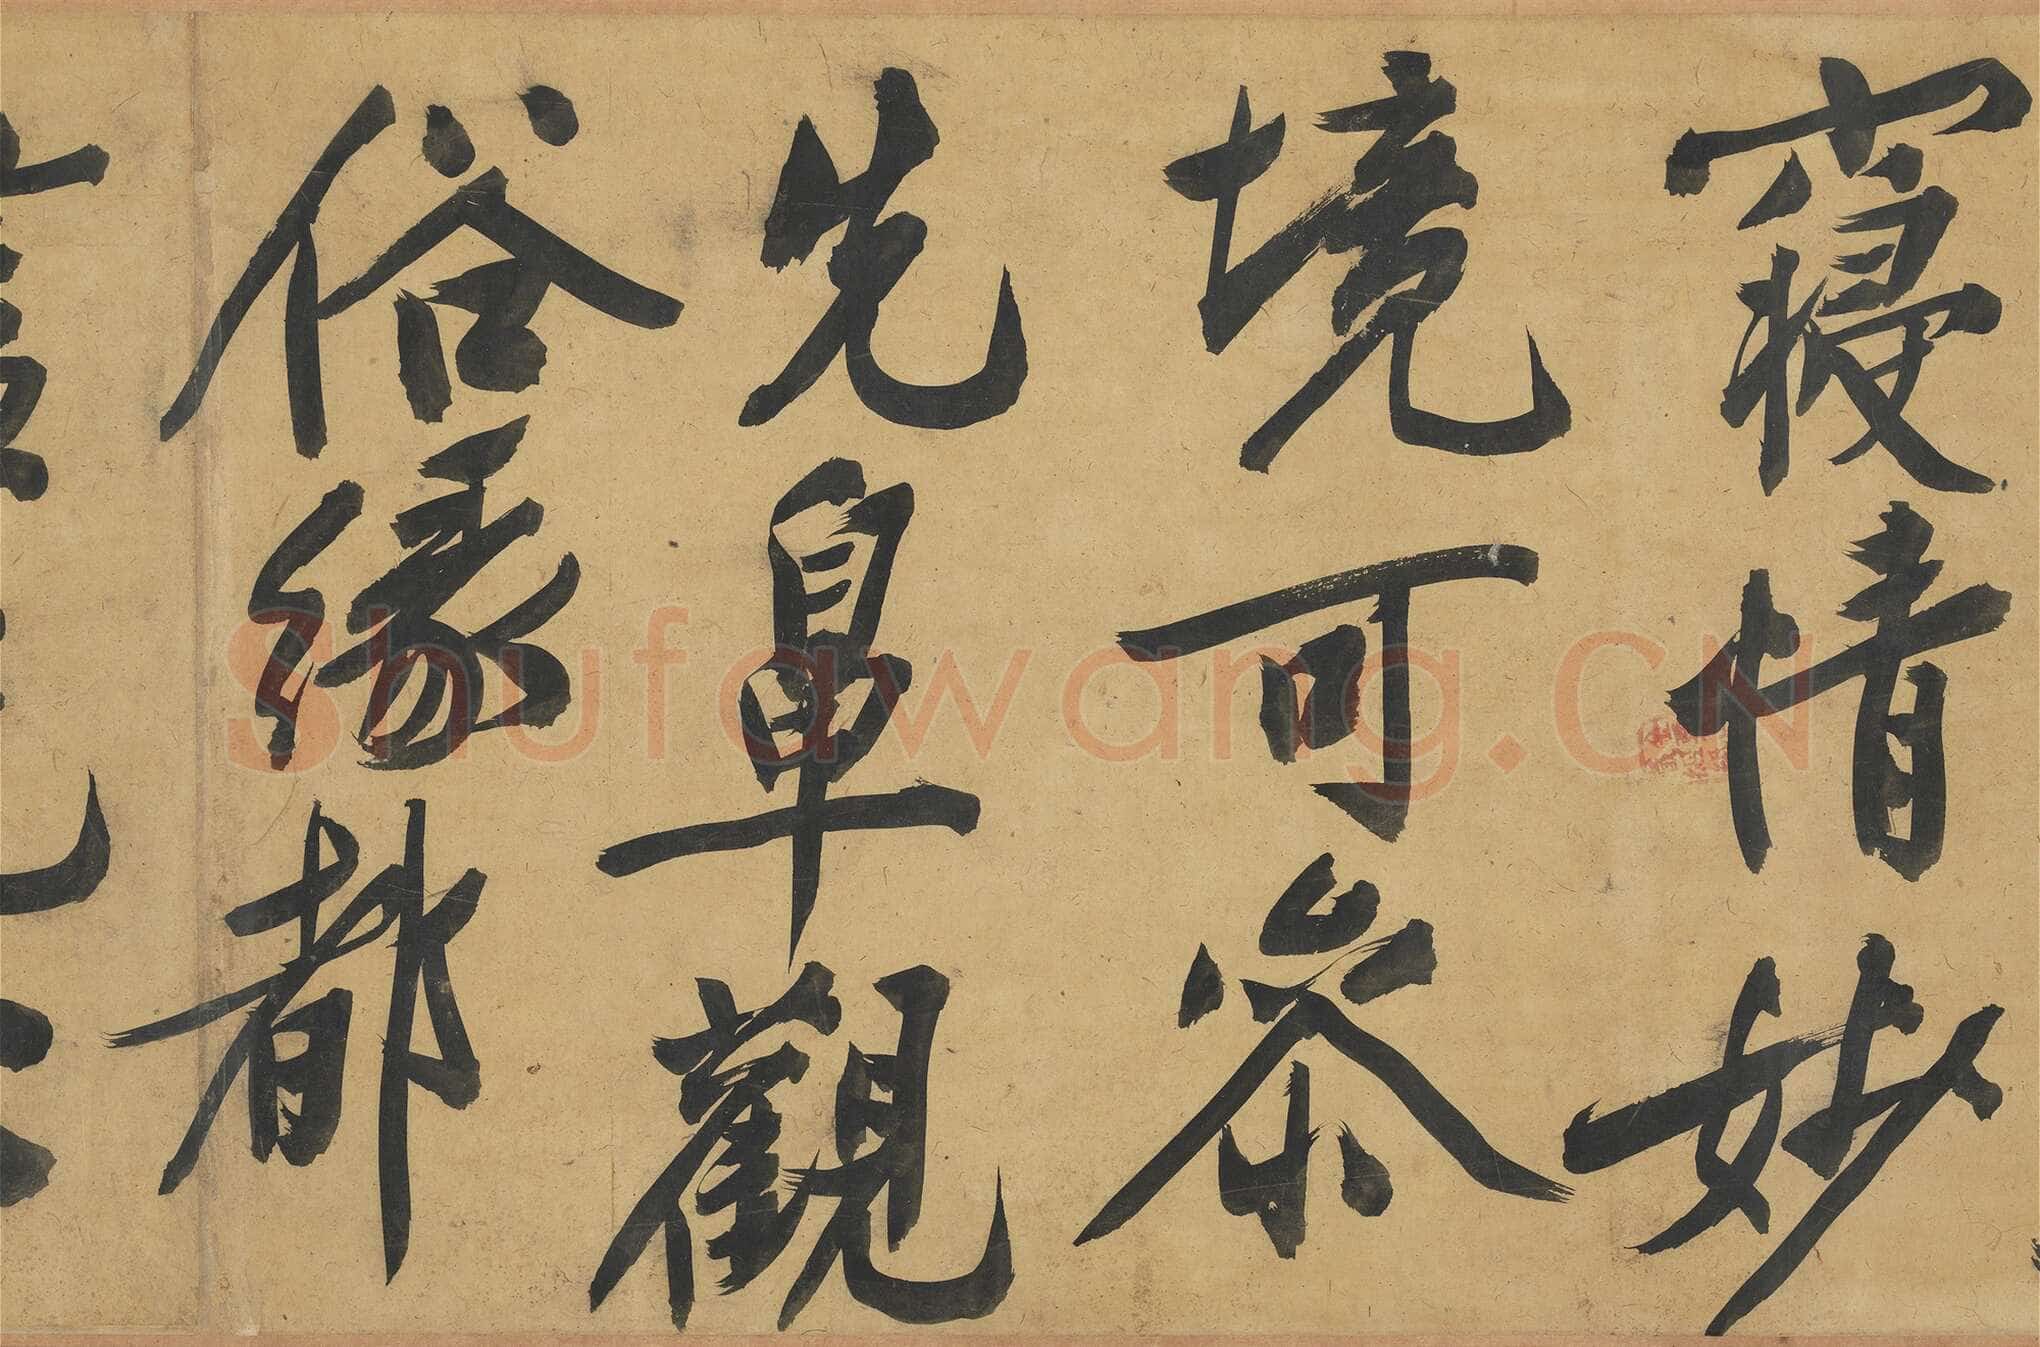 寢情妙
境可參
先皐觀
俗緣都
Shufawang.CN